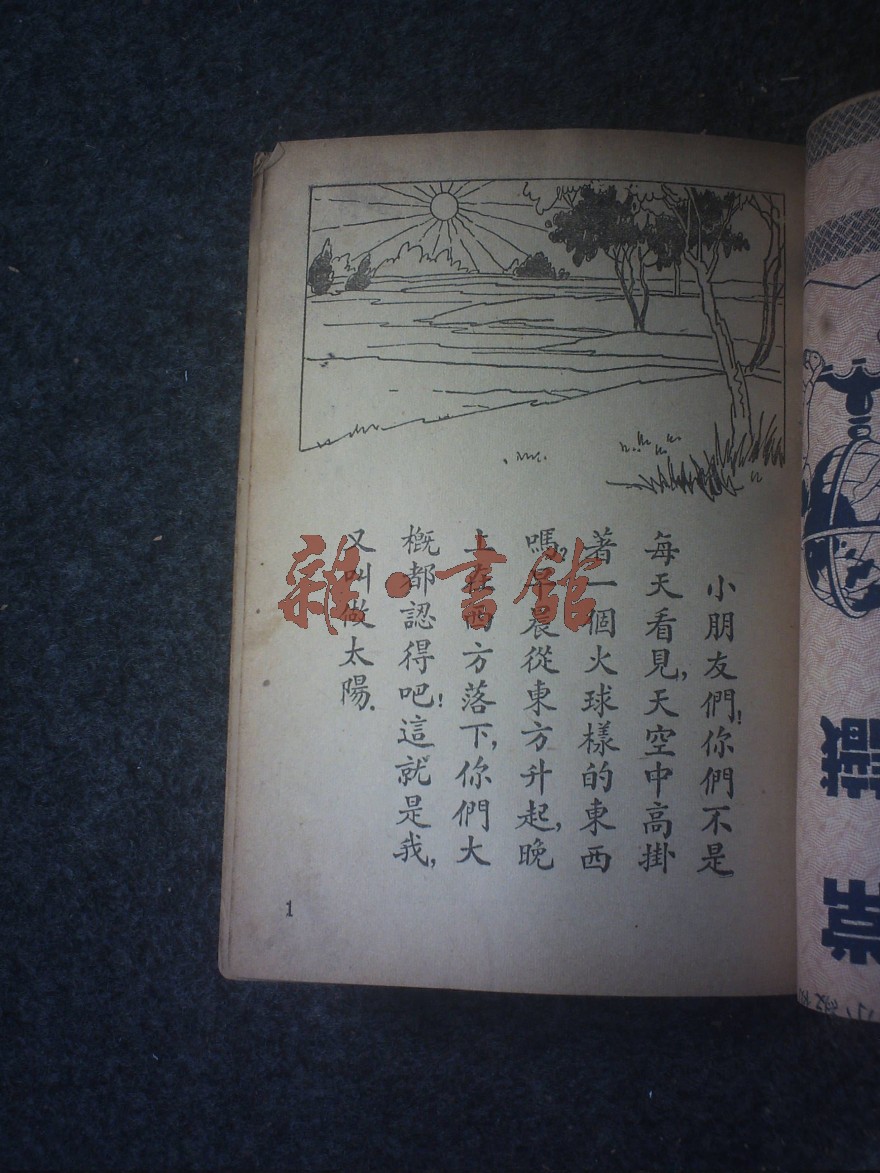 小朋友們!你們不是
每天看見,天空中高掛
著一個火球樣的東西
嗎?早晨從東方升起,晚
上在西方落下,你們大
概都認得吧!這就是我,
又叫做太陽.
1
雜·書館
常
識